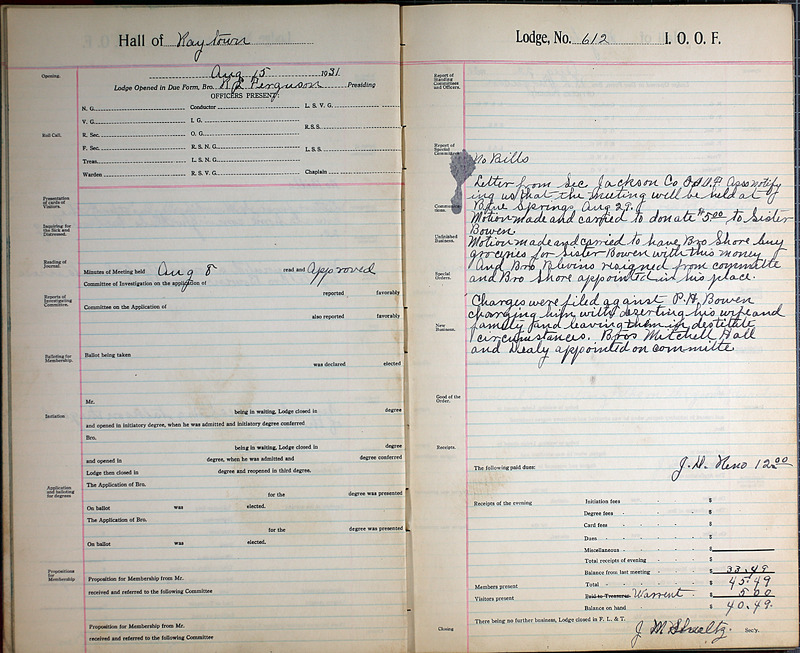 Hall of Raytown
Opening.
Aug 15 1931
Lodge Opened in Due Form, Bro. Ferguson Presiding
OFFICERS PRESENT:
N. G. Conductor L. S. V. G.
V. G. I. G.
Roll Call. R. Sec. O. G. R.S.S.
F. Sec. R. S. N. G. L.S.S.
Treas. L. S. N. G.
Warden R. S. V. G. Chaplain
Presentation of cards of Visitors.
Inquiring for the Sick and Distressed.
Reading of Journal.
Minutes of Meeting held Aug 8 read and Approved
Committee of Investigation on the application of
reported favorably
Reports of Investigating Committee.
Committee on the Application of
also reported favorably
Balloting for Membership.
Ballot being taken
was declared elected
Mr.
Initiation
being in waiting, Lodge closed in degree
and opened in initiatory degree, when he was admitted and initiatory degree conferred
Bro.
being in waiting, Lodge closed in degree
and opened in degree, when he was admitted and degree conferred
Lodge then closed in degree and reopened in third degree.
Application and balloting for degrees
The Application of Bro.
for the degree was presented
On ballot was elected.
The Application of Bro.
for the degree was presented
On ballot was elected.
Propositions for Membership
Proposition for Membership from Mr.
received and referred to the following Committee
Proposition for Membership from Mr.
received and referred to the following Committee
Lodge, No. 612 I. O. O. F.
Report of Standing Committees and Officers.
Report of Special
No Bills
Letter from Sec Jackson Co. Asso notify
ing us that the meeting will be held at
Blue Springs Aug 29.
Motion made and carried to donate $5.00 to Sister
Bowen.
Unfinished Business.
Motion made and carried to have Bro Shore buy
groceries for Sister Bowen with this money
And Bro Blevins resigned from committe
Special Orders.
and Bro Shore appointed in his place.
Charges were filed against P.H. Bowen
charging him with deserting his wife and
New Business.
family and leaving them in destitute
circumstances. Bros Mitchell Hall
and Dealy appointed on committe
Good of the Order.
Receipts.
The following paid dues:
J. D. Neno 12.00
Receipts of the evening Initiation fees $
Degree fees $
Card fees $
Dues $
Miscellaneous $
Total receipts of evening $
Balance from last meeting $ 33.49
Members present Total $ 45.49
Visitors present Paid to Treasurer Warrent $ 5.00
Balance on hand $ 40.49.
There being no further business, Lodge closed in F. L. & T.
Closing
J M Sec'y.